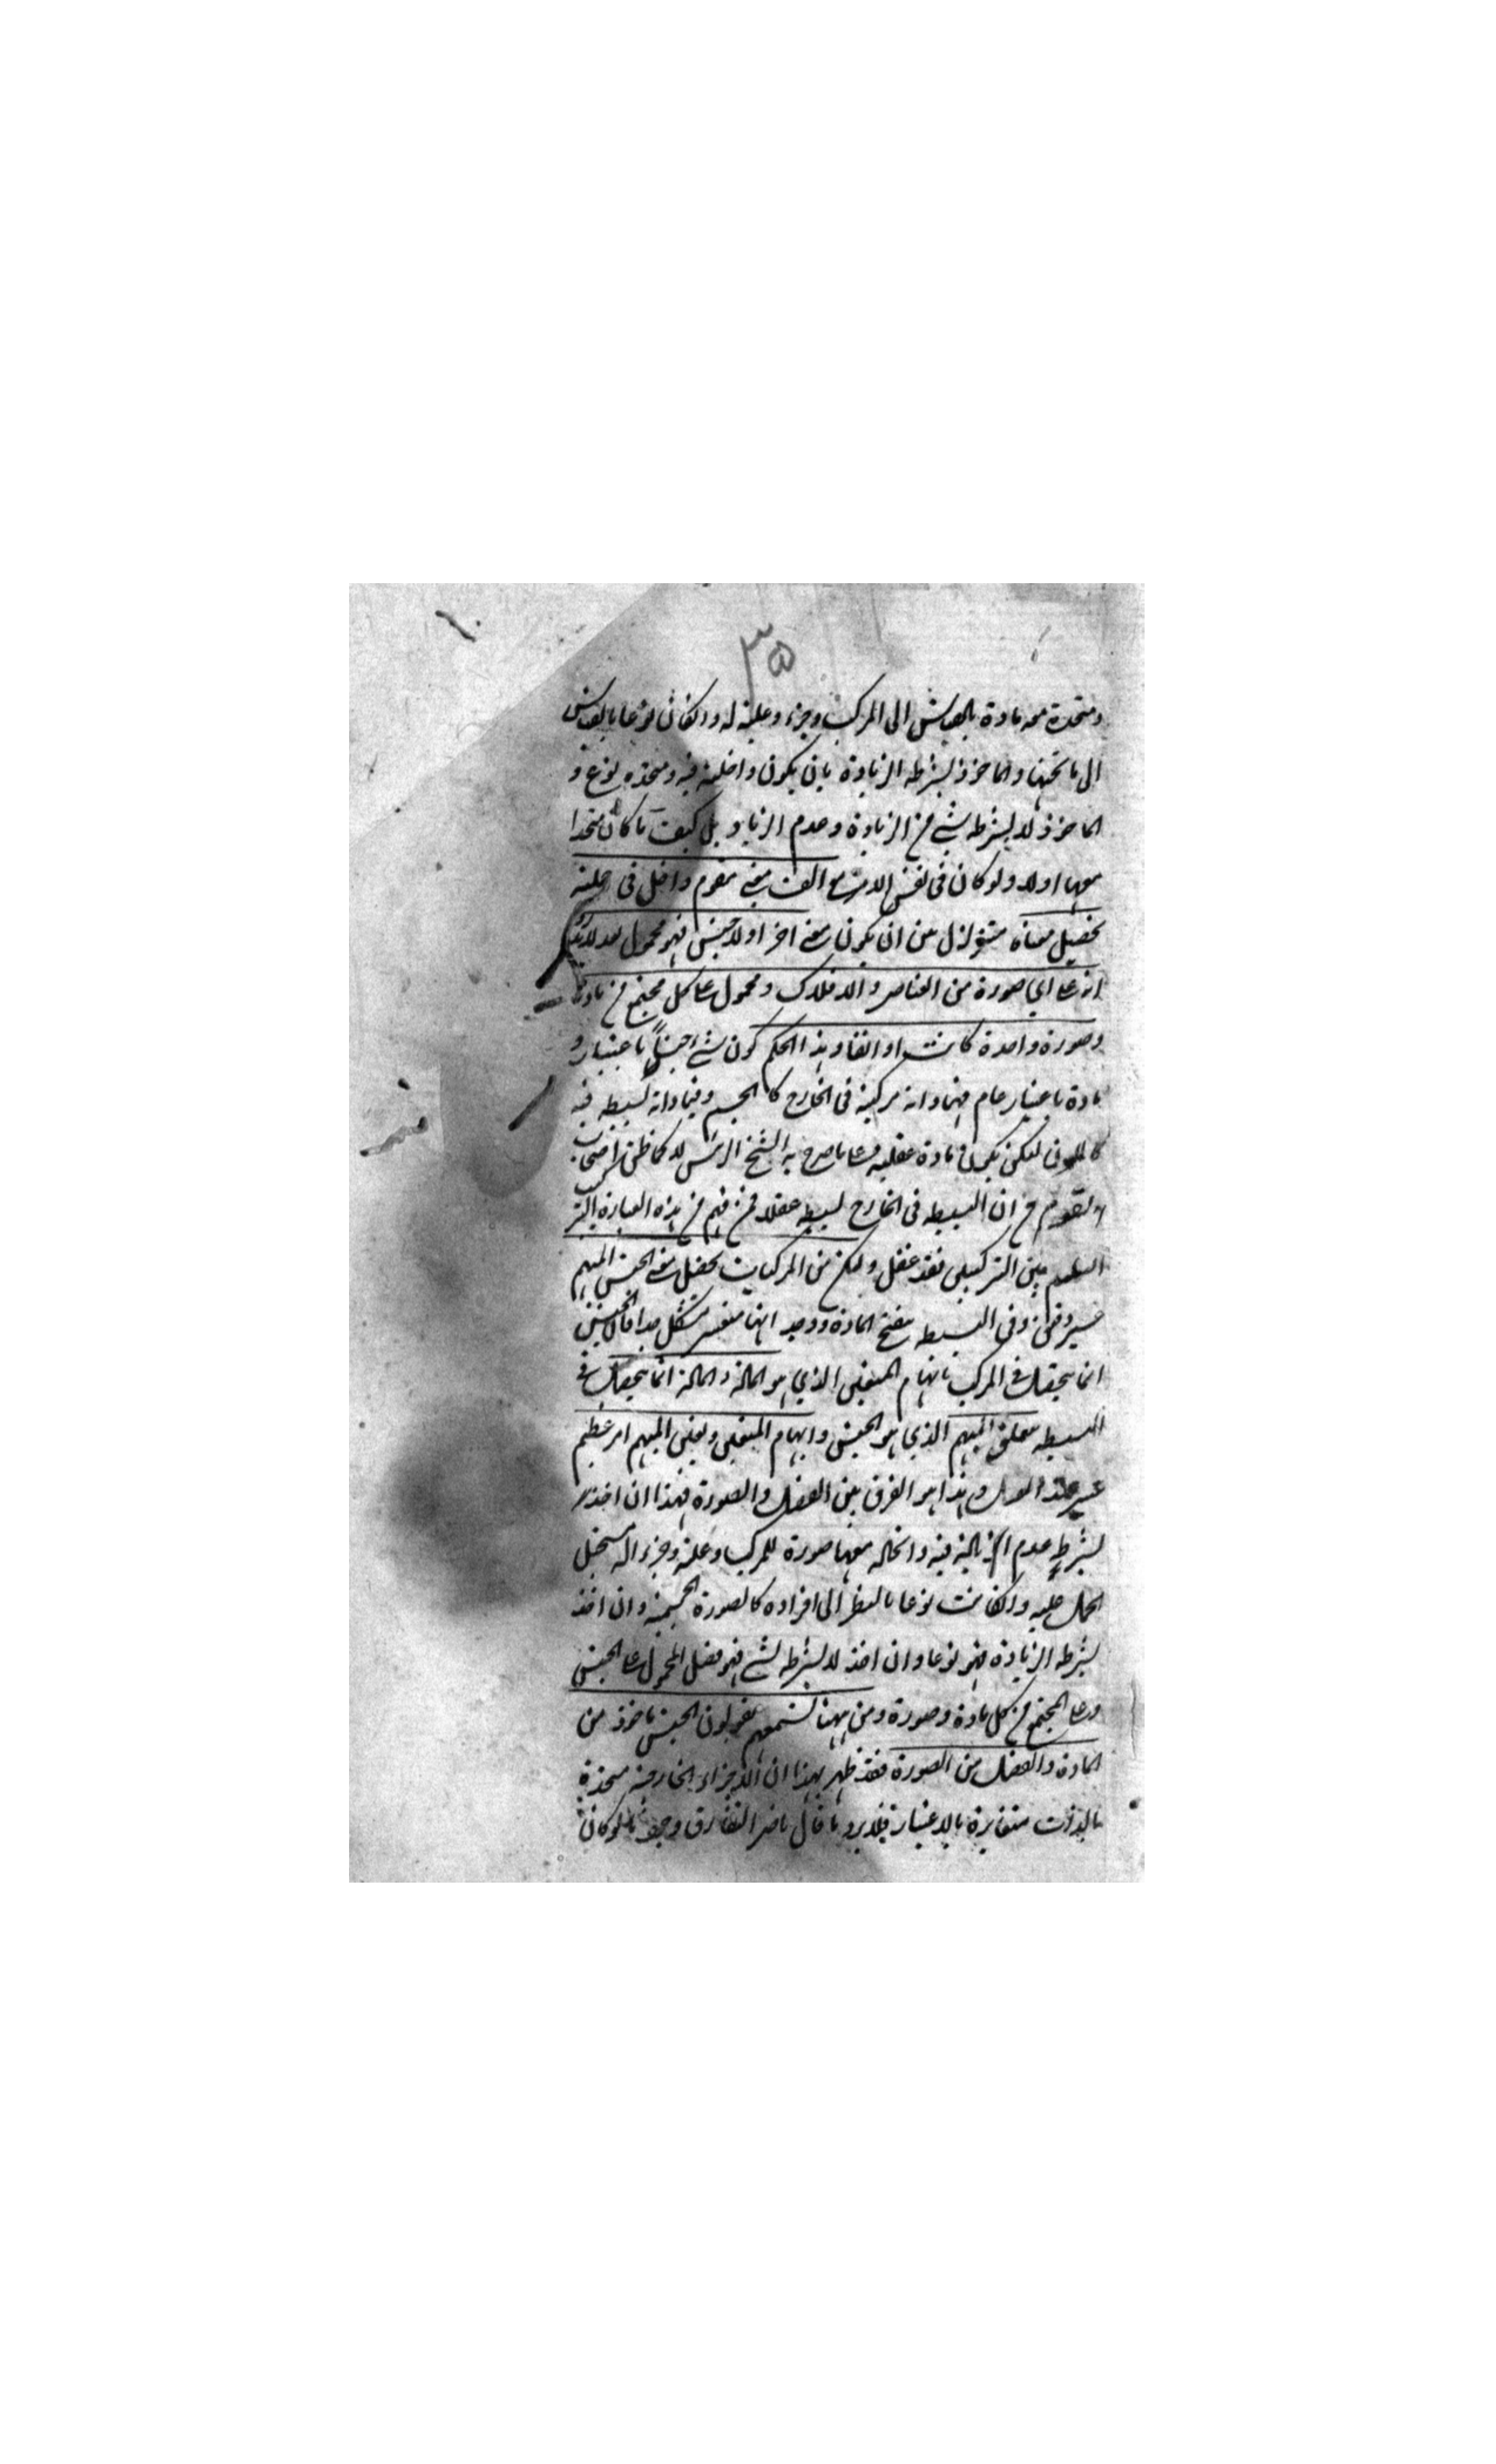 ٣٥
ومتحدة معه مادة بالقياس الى المركب وجزء وعلية له وان كان نوعا بالقياس
الى ما تحتها والماخوذ بشرط الزيادة بان يكون داخلة فيه ومتحدة نوع و
الماخوذ لا بشرط شي من الزيادة وعدم الزيادة بل كيف ما كان متحدا
معها اولا ولو كان في نفس الامر مع الف معنى مقوم داخل في جملة
تحصيل معناه من ان يكون معنى اخر اولا جنس فهو محمول بعد لا يدرى
انه على اي صورة من العناصر والافلاك ومحمول على كل مجتمع من مادة
وصورة واحدة كانت او الفا وهذا الحكم كون شي جنسا باعتبار و
مادة باعتبار عام فيما ذاته مركبة في الخارج كالجسم وفيما ذاته بسيطة فيه
كاللون لكن يكون مادة عقلية على ما صرح به الشيخ الرئيس لا كما ظن
القوم من ان البسيط في الخارج بسيط عقلا فمن فهم من هذه العبارة
بين التركيبين فقد غفل ولكن في المركبات تحصل معنى الجنس المبهم
عسير دقيق وفي البسيط تنقيح المادة انها متعسر مشكل
انما يتحقق في المركب بابهام المتعين الذي هو المادة والمادة انما يتحقق في
البسيط الذي هو الجنس وابهام المتعين وتعين المبهم امر عظيم
عسير عند العقل وهذا هو الفرق بين الفصل والصورة فهذا ان اخذ
بشرط عدم الزيادة فيه معها صورة للمركب وعلة وجزء له مستحيل
الحمل عليه وان كانت نوعا بالنظر الى افراده كالصورة الجسمية وان اخذ
بشرط الزيادة فهو نوعا وان اخذ لا بشرط شي فهو فصل المحمول على الجنس
وعلى المجتمع من كل مادة وصورة ومن ههنا تسمعهم يقولون الجنس ماخوذ من
المادة والفصل من الصورة فقد ظهر بهذا ان الاجزاء الخارجية متحدة
بالذات متغايرة بالاعتبار فلا يرد ما قال